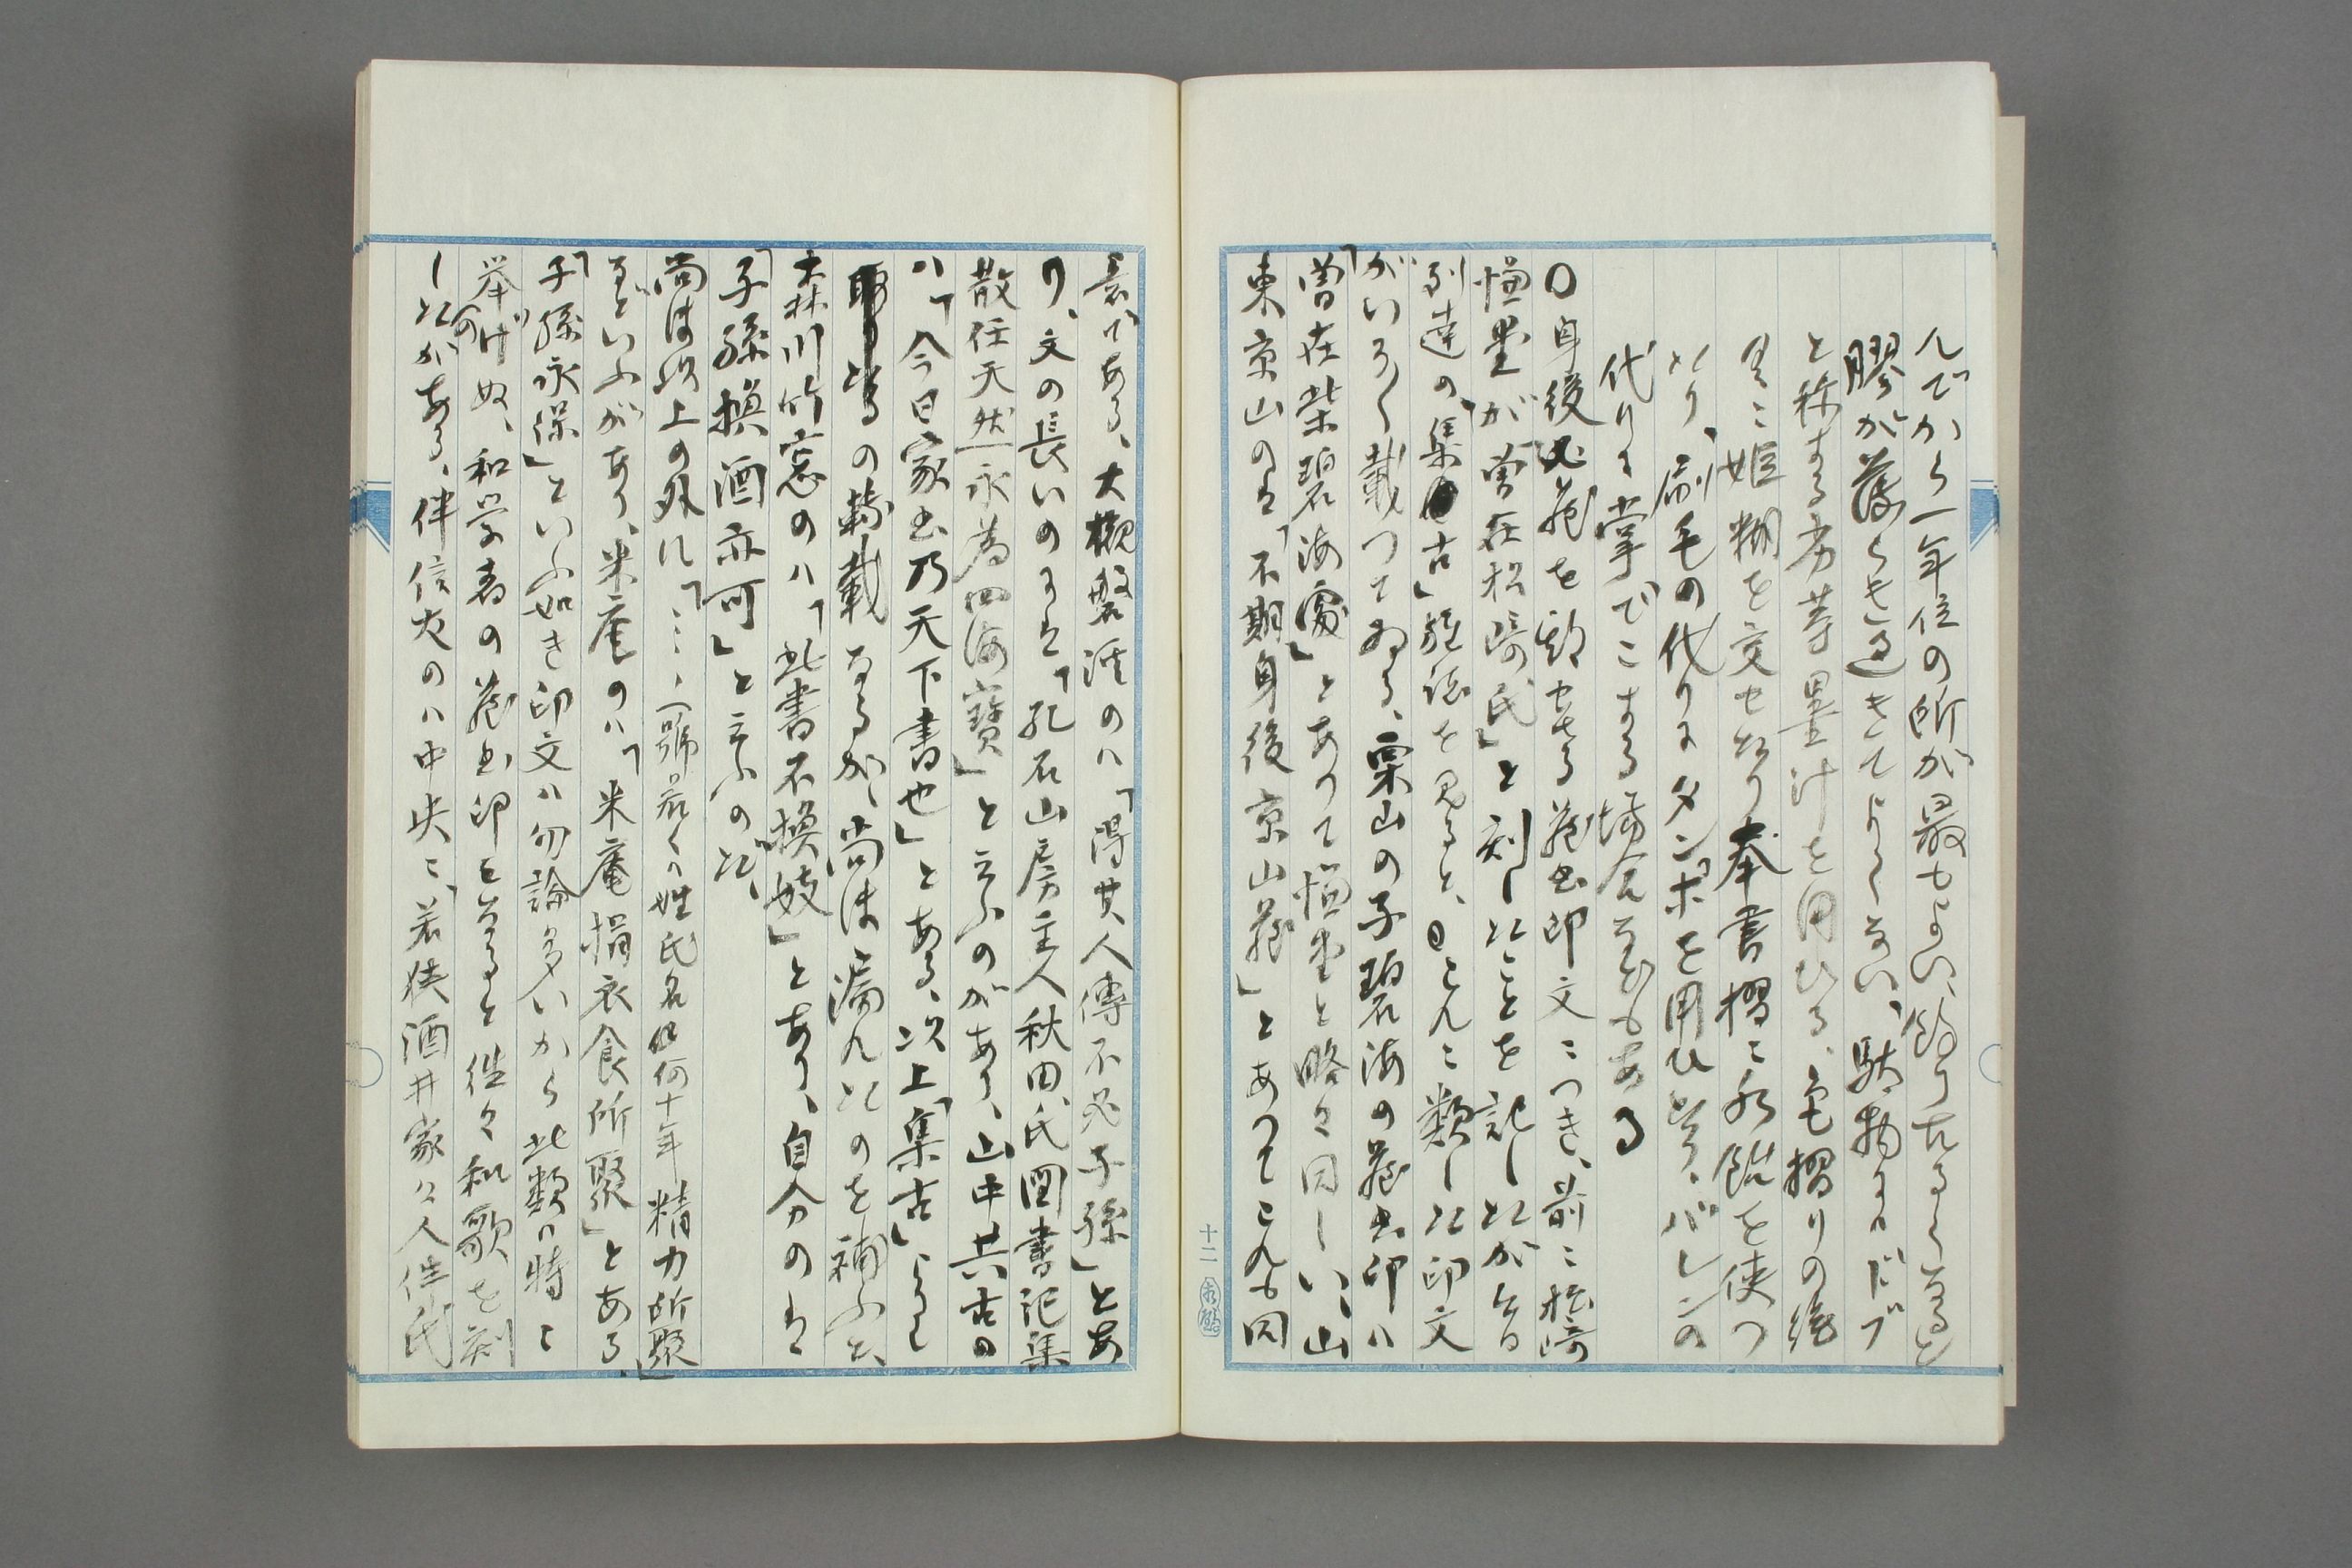 んでから一年位の所が最もよい、余り古るくなると
膠が落ちき過ぎてよくない、駄物にハドブ
と称する劣等墨汁を用ひる、色摺りの絵
具ニ姫糊を交せたり奉書摺ニ水飴を使つ
たり、刷毛の代りにタンポを用ひたり、バレンの
代りに掌でこする場合などもある
〇身後必ず蔵を散せる蔵書印文ニつき、前ニ松崎
慊堂が「曾在松崎氏」と刻したことを記したが今日
到達の「集古」雑誌を見ると、これニ類した印文
がいろ〱載つてゐる、栗山の子碧海の蔵書印ハ
「曾在柴碧海家」とありて慊堂と略々同しい、山
東京山のは「不期身後京山蔵」とあつてこれも同
意である、大槻磐渓のハ「得其人傳不必子孫」とあ
り、文の長いのには「孔石山房主人秋田氏図書記集
散任天然永為四海寶」と云ふのがあり、山中共古の
ハ「今日家書乃天下書也」とある、以上「集古」よりし
の転載なるが、尚ほ漏れたのを補ふと、
森川竹窓のハ「此書不換妓」とあり、自分のは
「子孫換酒亦可」と云ふのだ、
尚ほ以上の外に「……(号若くハ姓氏名)何十年精力所聚」
などいふがあり、米庵のハ「米庵損衣食所聚」とある、
「子孫永保」といふ如き印文ハ勿論多いから此類ハ特ニ
挙げぬ、和学者の蔵書印となると往々和歌を刻
したのがある、伴信友のハ中央ニ「若狭酒井家々人伴氏
十二